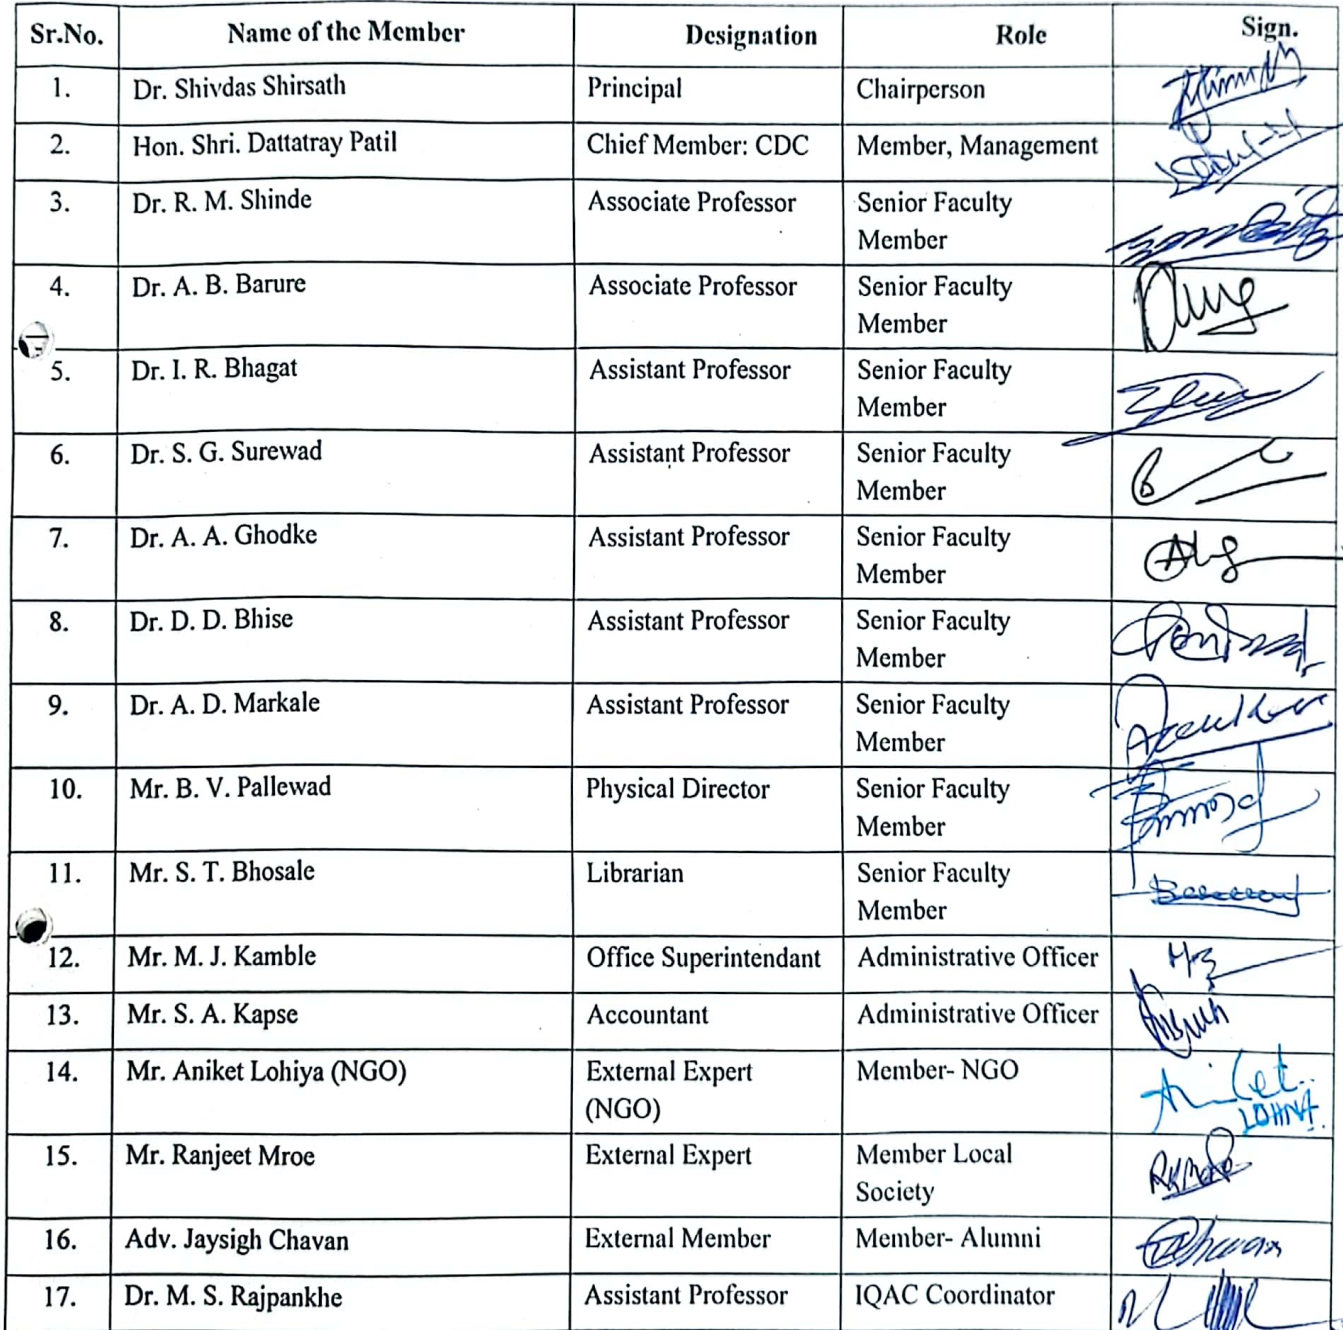 Sr.No. Name of the Member Designation Role Sign.
1. Dr. Shivdas Shirsath Principal Chairperson
2. Hon. Shri. Dattatray Patil Chief Member: CDC Member, Management
3. Dr. R. M. Shinde Associate Professor Senior Faculty
Member
4. Dr. A. B. Barure Associate Professor Senior Faculty
Member
5. Dr. I. R. Bhagat Assistant Professor Senior Faculty
Member
6. Dr. S. G. Surewad Assistant Professor Senior Faculty
Member
7. Dr. A. A. Ghodke Assistant Professor Senior Faculty
Member
8. Dr. D. D. Bhise Assistant Professor Senior Faculty
Member
9. Dr. A. D. Markale Assistant Professor Senior Faculty
Member
10. Mr. B. V. Pallewad Physical Director Senior Faculty
Member
11. Mr. S. T. Bhosale Librarian Senior Faculty
Member
12. Mr. M. J. Kamble Office Superintendant Administrative Officer
13. Mr. S. A. Kapse Accountant Administrative Officer
14. Mr. Aniket Lohiya (NGO) External Expert Member- NGO Aniket
(NGO)
15. Mr. Ranjeet Mroe External Expert Member Local
Society
16. Adv. Jaysigh Chavan External Member Member- Alumni
17. Dr. M. S. Rajpankhe Assistant Professor IQAC Coordinator